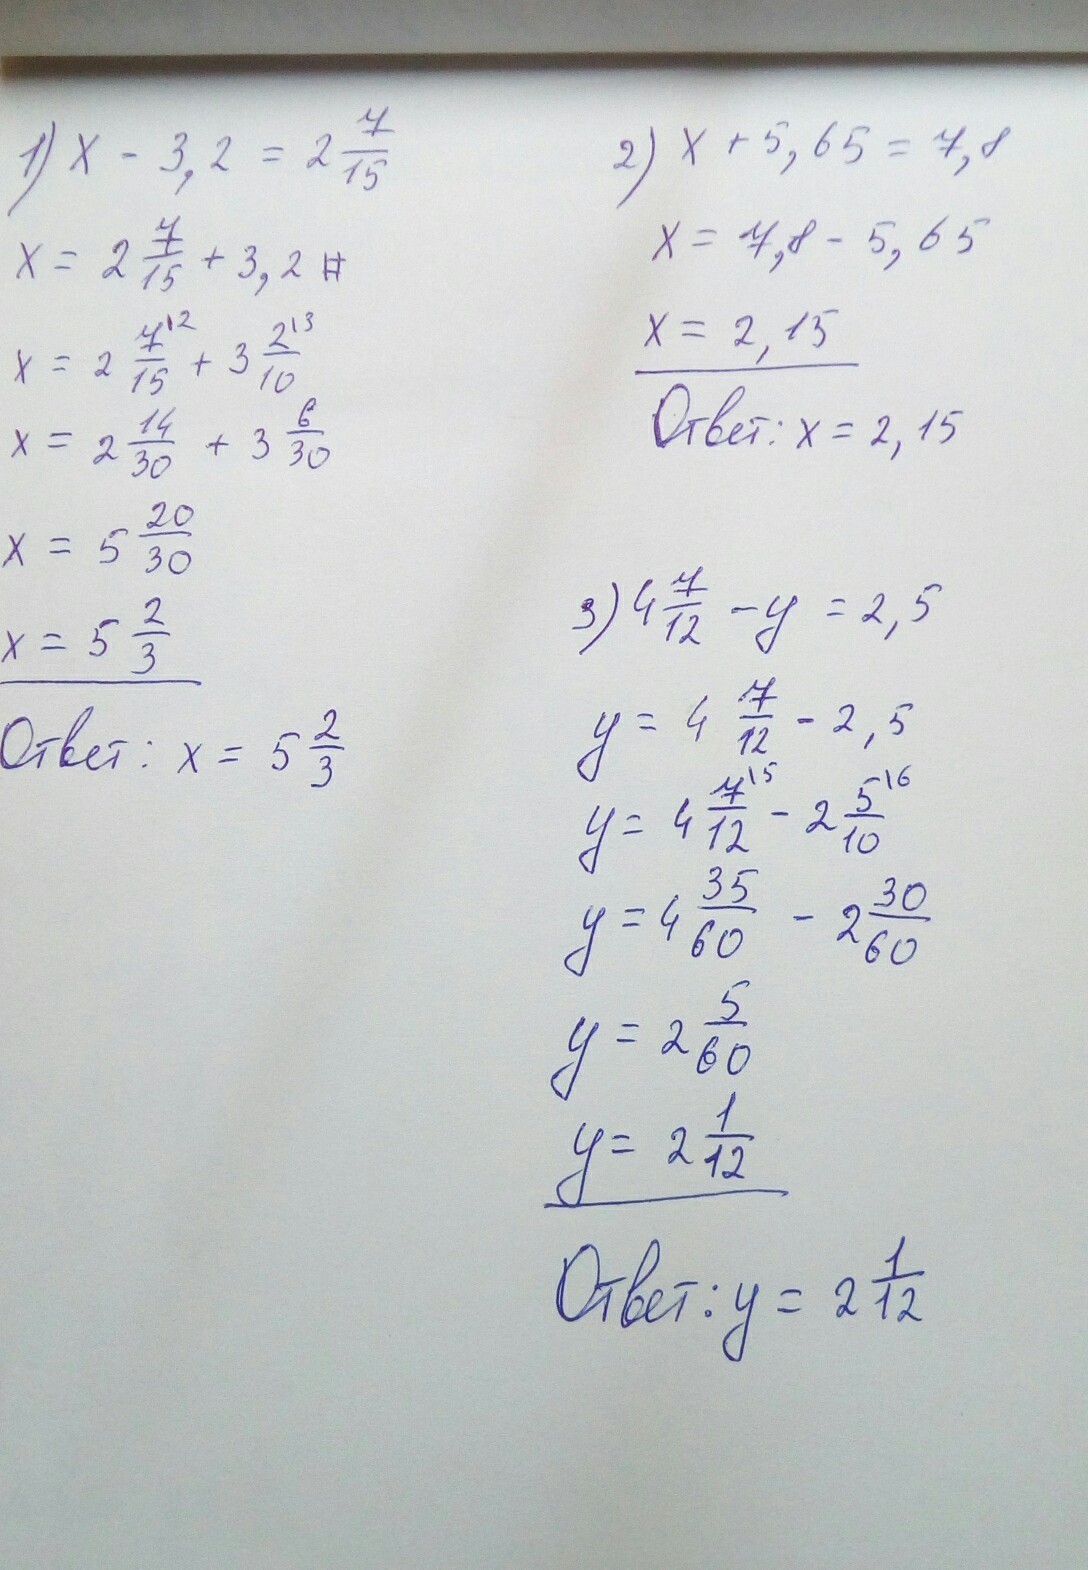 1) x - 3,2 = 2 7/15
x = 2 7/15 + 3,2 #
x = 2 7\2/15 + 3 2\3/10
x = 2 14/30 + 3 6/30
x = 5 20/30
x = 5 2/3
Ответ: x = 5 2/3
2) x + 5,65 = 7,8
x = 7,8 - 5,65
x = 2,15
Ответ: x = 2,15
3) 4 7/12 - y = 2,5
y = 4 7/12 - 2,5
y = 4 7\5/12 - 2 5\6/10
y = 4 35/60 - 2 30/60
y = 2 5/60
y = 2 1/12
Ответ: y = 2 1/12